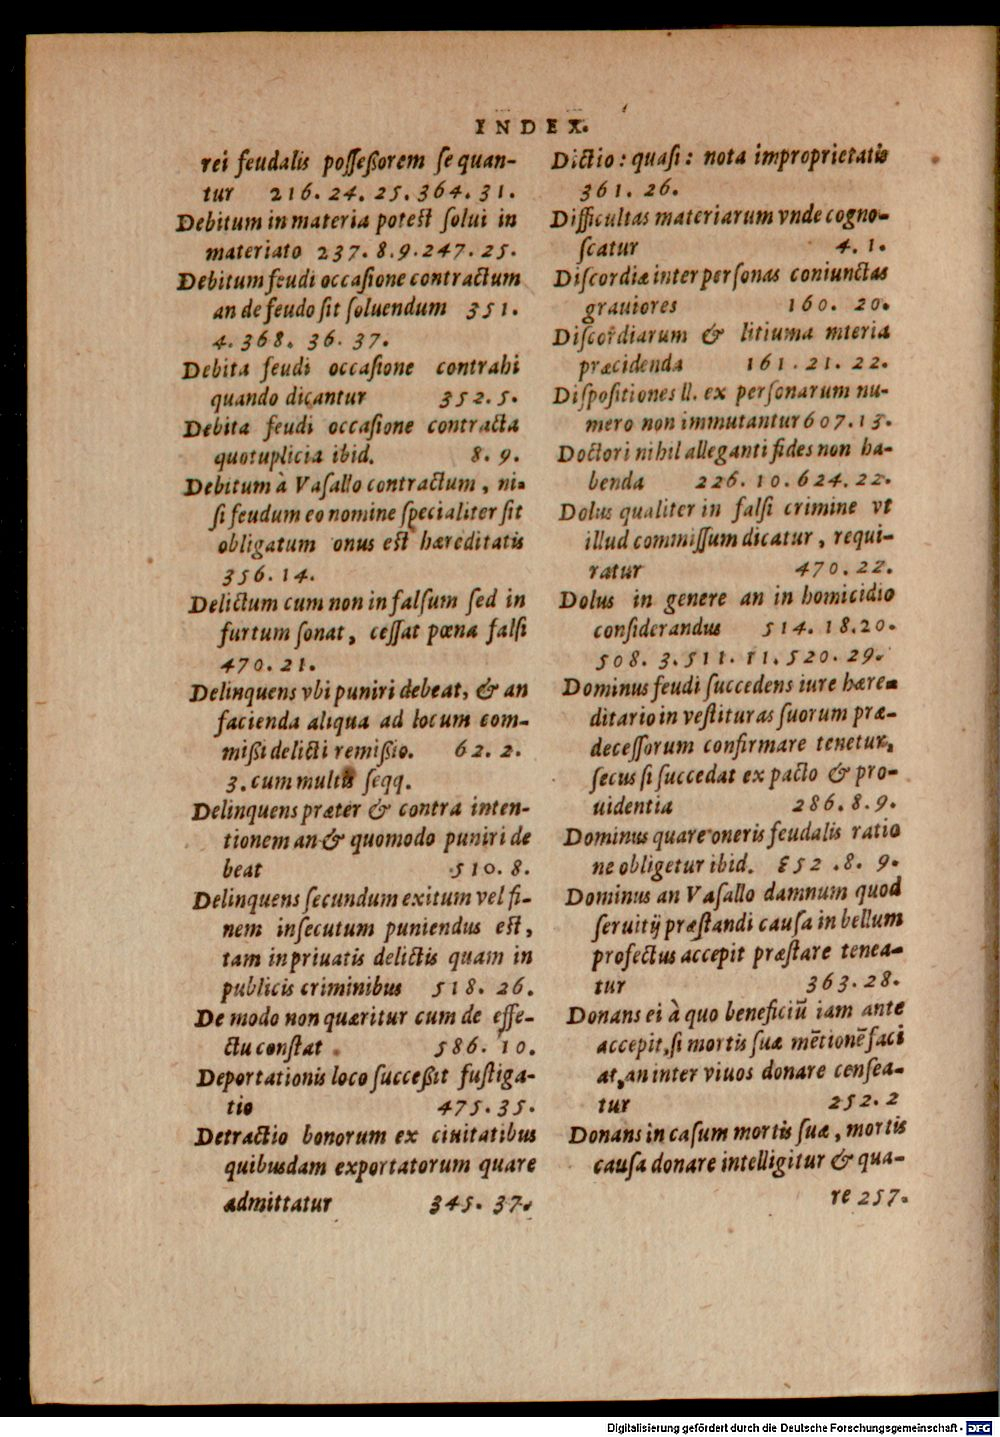 INDEX.
rei feudalis poſſeßorem ſequan-
tur 216. 24. 25. 364. 31.
Debitum in materia poteſt ſolui in
materiato 237. 8. 9. 247. 25.
Debitum feudi occaſione contractum
an de feudo ſit ſoluendum 351.
4. 368. 36. 37.
Debita feudi occaſione contrahi
quando dicantur 352. 5.
Debita feudi occaſione contracta
quotuplicia ibid. 8. 9.
Debitum à Vaſallo contractum, ni-
ſi feudum eo nomine ſpecialiter ſit
obligatum onus eſt hæreditatis
356. 14.
Delictum cum non in falſum ſed in
furtum ſonat, ceſſat pœna falſi
470. 21.
Delinquens vbi puniri debeat, & an
facienda aliqua ad locum com-
mißi delicti remißio. 62. 2.
3. cum multis ſeqq.
Delinquens præter & contra inten-
tionem an & quomodo puniri de
beat 510. 8.
Delinquens ſecundum exitum vel fi-
nem inſecutum puniendus eſt,
tam in priuatis delictis quam in
publicis criminibus 518. 26.
De modo non quæritur cum de effe-
ctu conſtat. 586. 10.
Deportationis loco ſucceßit fuſtiga-
tio 475. 35.
Detractio bonorum ex ciuitatibus
quibusdam exportatorum quare
admittatur 345. 37.
Dictio: quaſi: nota improprietatis
361. 26.
Difficultas materiarum vnde cogno-
ſcatur 4. 1.
Diſcordiæ inter perſonas coniunctas
grauiores 160. 20.
Diſcordiarum & litiuma mteria
præcidenda 161. 21. 22.
Diſpoſitiones ll. ex perſonarum nu-
mero non immutantur 607. 13.
Doctori nihil alleganti fides non ha-
benda 226. 10. 624. 22.
Dolus qualiter in falſi crimine vt
illud commiſſum dicatur, requi-
ratur 470. 22.
Dolus in genere an in homicidio
conſiderandus 514. 18. 20.
508. 3. 511. 11. 520. 29.
Dominus feudi ſuccedens iure hære-
ditario inveſtituras ſuorum præ-
deceſſorum confirmare tenetur,
ſecus ſi ſuccedat ex pacto & pro-
uidentia 286. 8. 9.
Dominus quare oneris feudalis ratio
ne obligetur ibid. 852. 8. 9.
Dominus an Vaſallo damnum quod
ſeruitij præſtandi cauſa in bellum
profectus accepit præſtare tenea-
tur 363. 28.
Donans ei à quo beneficiū iam ante
accepit, ſi mortis ſuæ mẽtionẽ faci
at, an inter viuos donare cenſea-
tur 252. 2
Donans in caſum mortis ſuæ, mortis
cauſa donare intelligitur & qua-
re 257.
Digitalisierung gefördert durch die Deutsche Forschungsgemeinschaft - DFG